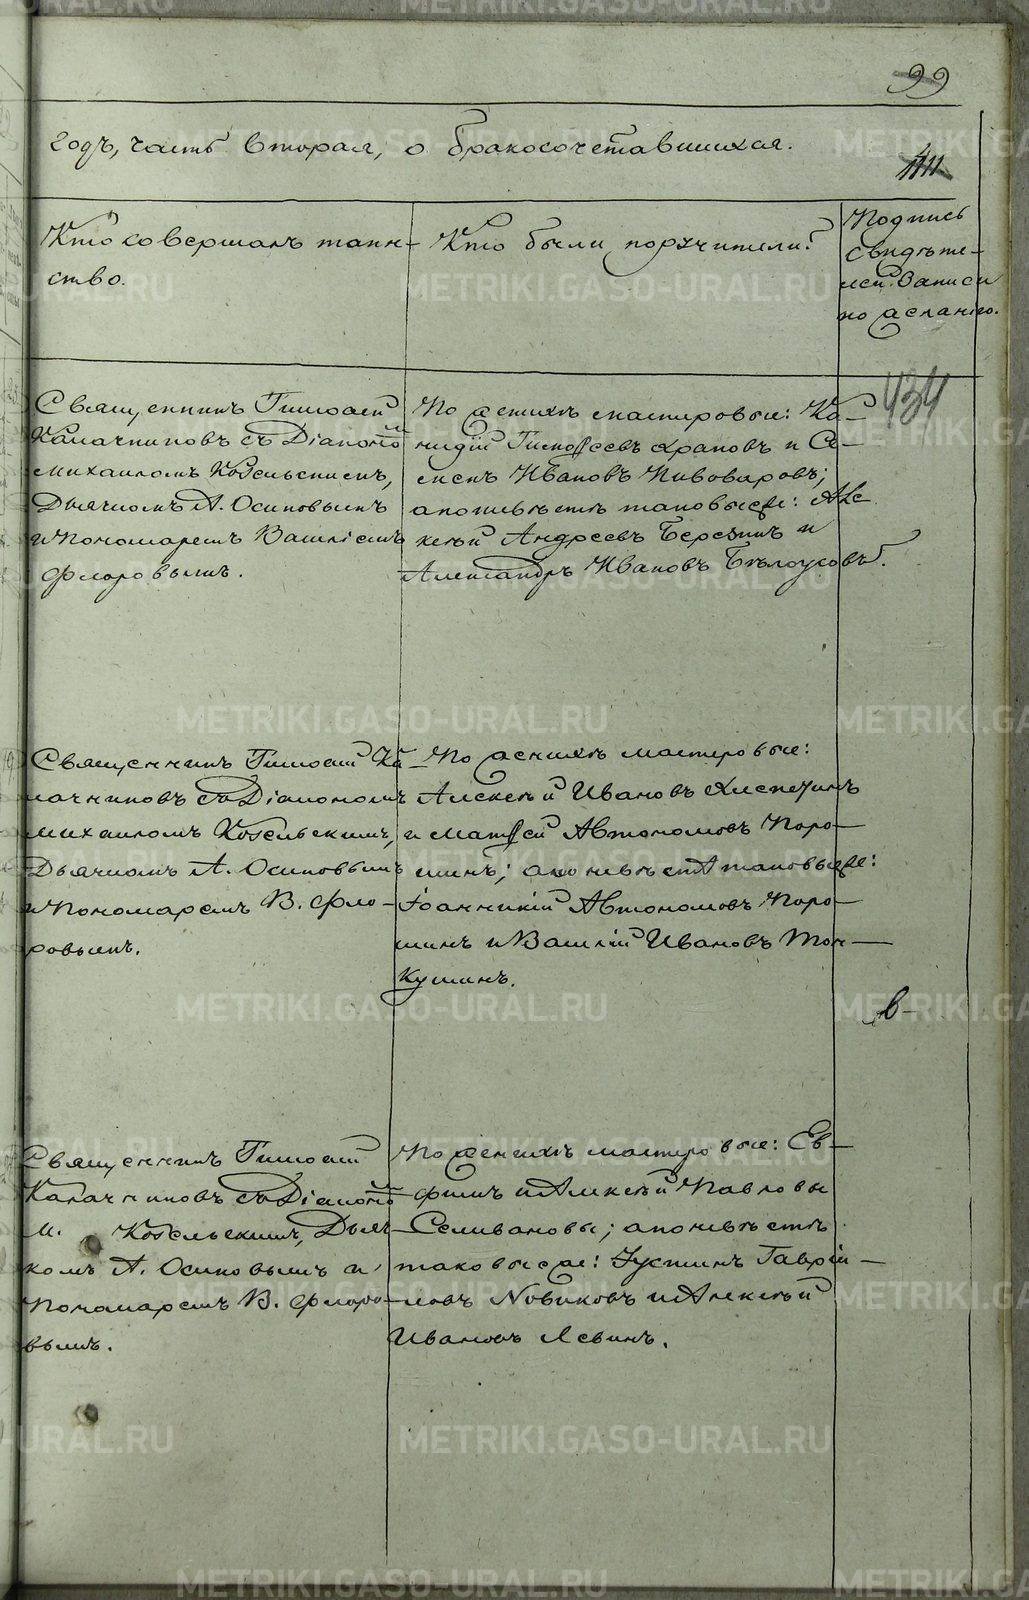 99
годъ, часть вторая, о бракосочетавшихся.
Кто совершалъ таин-
ство.
Кто были поручители?
Подпись
свидѣте-
лей записи
по желанію.
434
Священникъ Тимоѳей
Калачниковъ съ Діакономъ
Михаиломъ Козельскимъ,
Дьячкомъ А. Осиповымъ
и Пономаремъ Василіемъ
Флоровымъ.
По женихѣ мастеровые: Ка-
нидій Тимоѳеевъ Храповъ и Се-
менъ Ивановъ Пивоваровъ;
а по невѣстѣ таковые же: Але
ксѣй Андреевъ Березинъ и
Александръ Ивановъ Бѣлоусовъ.
Священникъ Тимоѳей Ка-
лачниковъ съ Діакономъ
Михаиломъ Козельскимъ,
Дьячкомъ А. Осиповымъ
и Пономаремъ В. Фло-
ровымъ.
По женихѣ мастеровые:
Алексѣй Ивановъ
и Матѳей Автономовъ Поро-
шинъ; а по невѣстѣ таковые же:
Іоанникій Автономовъ Поро-
шинъ и Василій Ивановъ Тон-
кушинъ.
в-
Священникъ Тимоѳей
Калачниковъ съ Діакономъ
М. Козельскимъ, Дьяч-
комъ А. Осиповымъ и
Пономаремъ В. Флоро-
вымъ.
По женихѣ мастеровые: Ев-
фимъ и Алексѣй Павловы
Селивановы; а по невѣстѣ
таковые же: Іустинъ Гаврій-
ловъ Новиковъ и Алексѣй
Ивановъ Левинъ.
METRIKI.GASO-URAL.RU